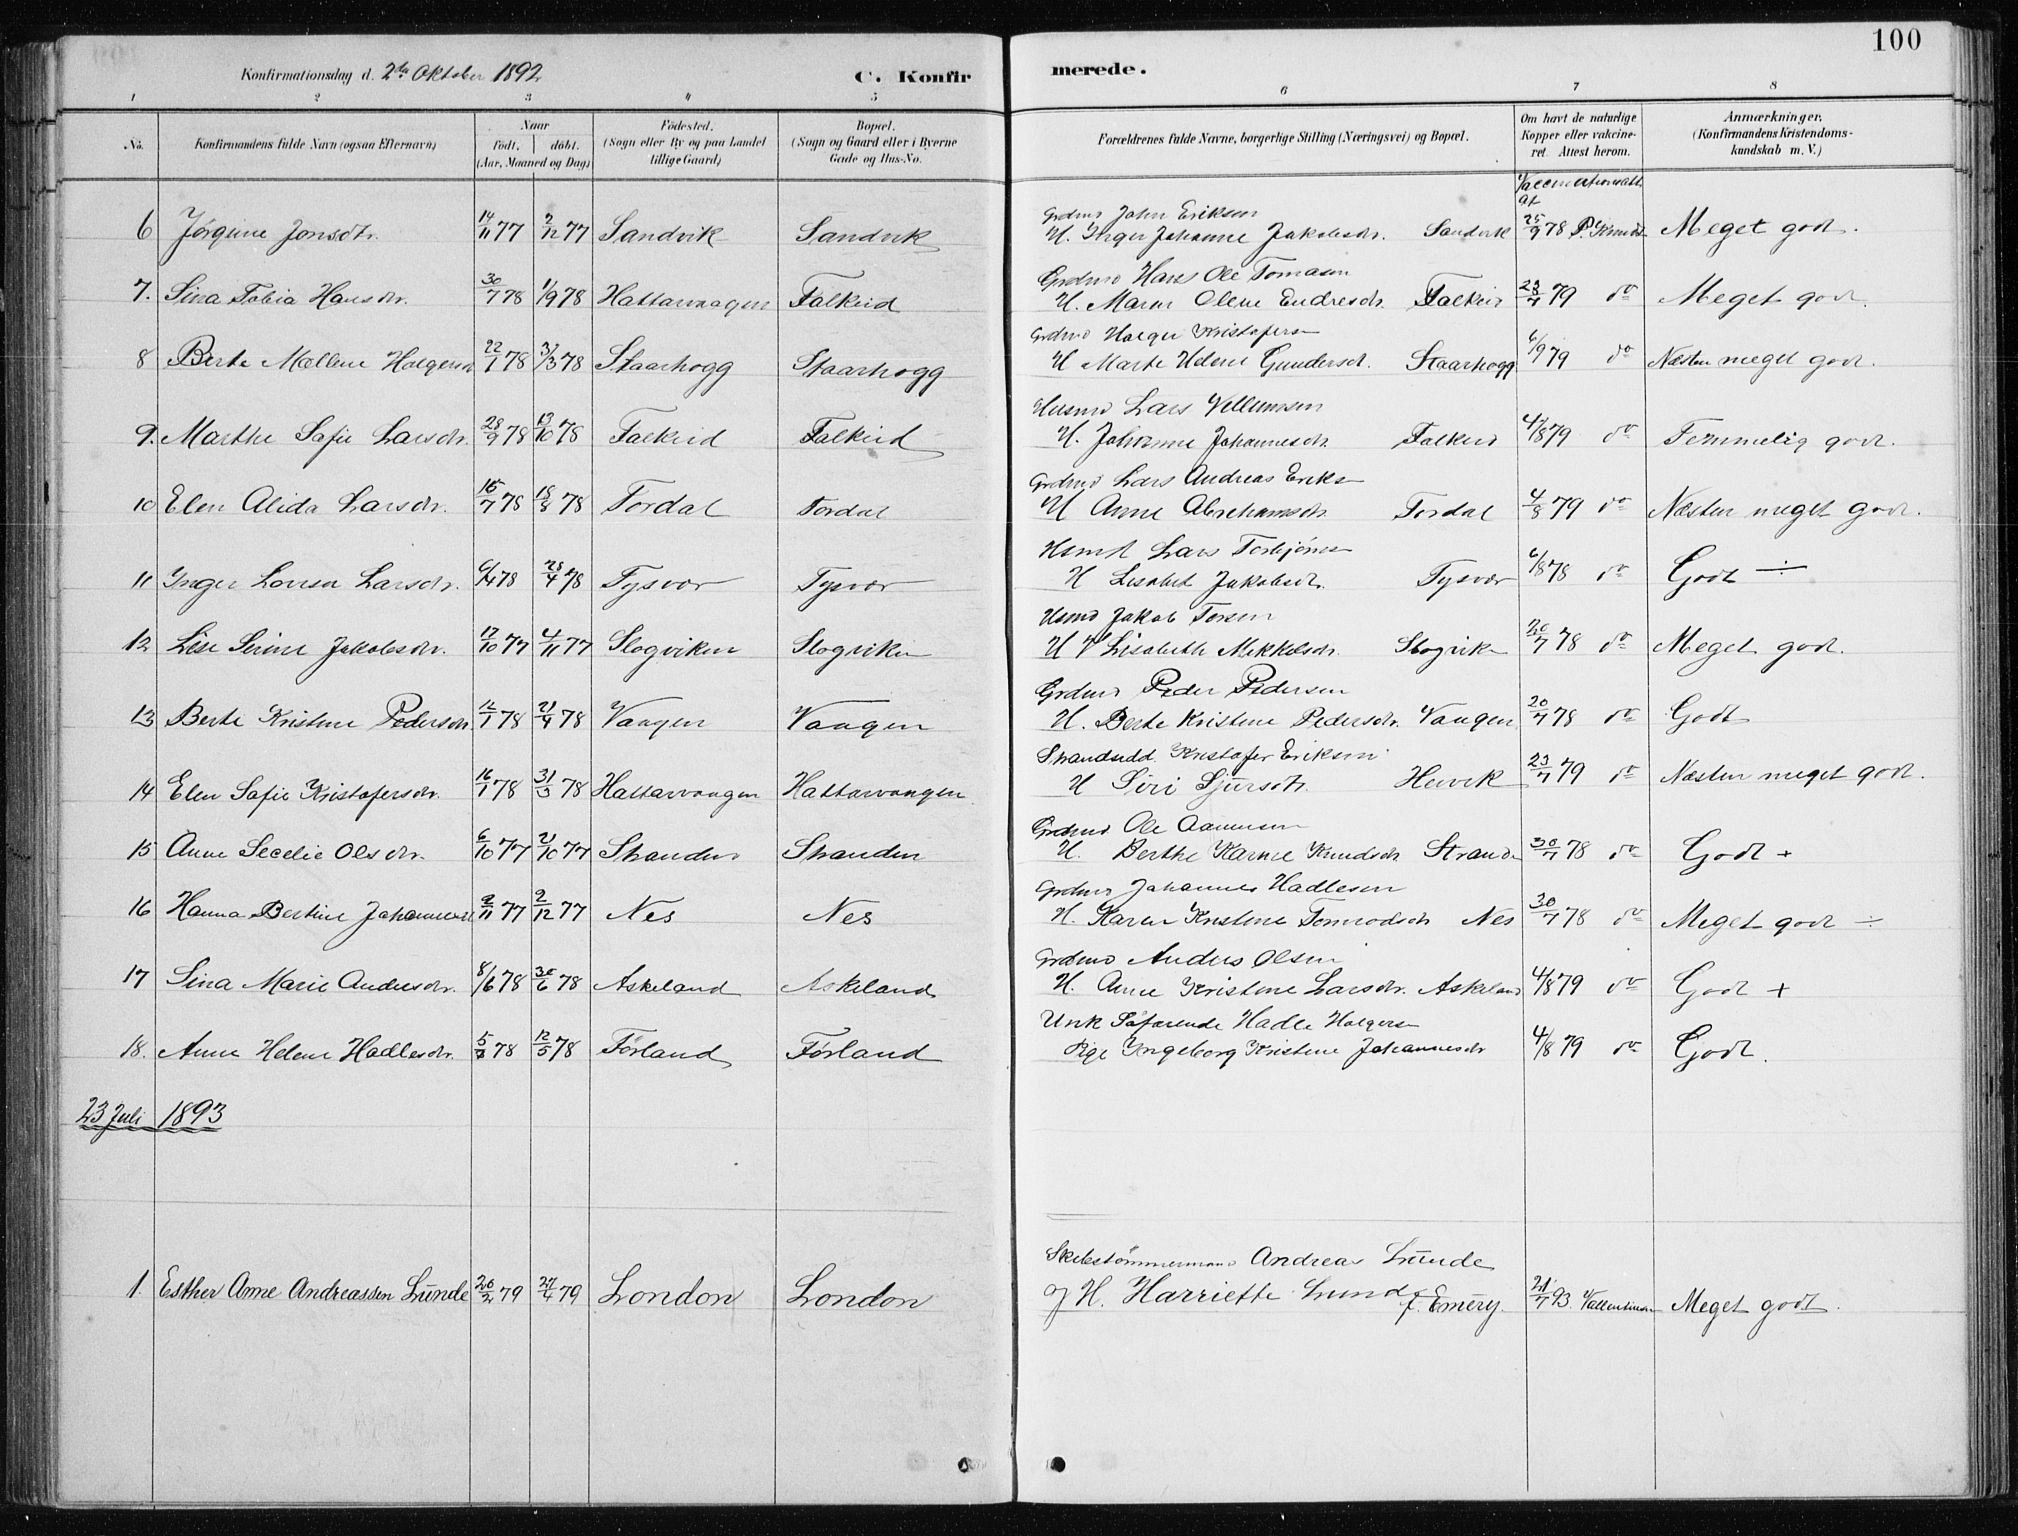 100
Konfirmationsdag d. 2den Oktober 1892
C. Konfirmerede.
1 2 3 4 5 6 7 8
No. Konfirmandens fulde Navn (ogsaa Efternavn) Naar født. døbt. (Aar, Maaned og Dag) Fødested. (Sogn eller By og paa Landet tillige Gaard) Bopæl. (Sogn og Gaard eller i Byerne Gade og Hus-No. Forældrenes fulde Navne, borgerlige Stilling (Næringsvei) og Bopæl. Om havt de naturlige Kopper eller vakcineret. Attest herom. Anmærkninger. (Konfirmandens Kristendomskundskab m. V.)
Vaccinationsatt. af
Grdmd John Eriksen
6 Jørgine Jonsdtr. 14/11 77 2/12 77 Sandvik Sandvik H. Inger Johanne Jakobsdr. Sandvik 25/9 78 P. Knuds Meget godt.
Grdmd Hans Ole Tomasen
7. Sina Tobia Hansdr. 30/7 78 1/9 78 Hattarvaagen Falkeid H. Maren Olene Endresdr. Falkeid 23/7 79 do Meget godt.
Grdmd Holger Kristofersen
8 Berte Mællene Holgersd 22/1 78 31/3 78 Staarhogg Staarhogg H Marte Helene Gundersd. Staarhogg 6/9 79 do Næsten meget godt.
Husmd Lars Villumsen
9. Marthe Safie Larsdr. 28/9 78 13/10 78 Falkeid Falkeid H. Johanne Johannesdr. Falkeid 4/8 79 do Temmelig godt.
Grdmd Lars Andreas Eriks
10 Elen Alida Larsdr. 15/7 78 18/8 78 Tordal Tordal H Anne Abrahamsdr. Tordal 4/8 79 do Næsten meget godt.
Husmd Lars Torbjønsen
11 Inger Lovisa Larsdr. 6/4 78 28/4 78 Tysvær Tysvær H Lisabet Jakobsdr. Tysvær 6/8 78 do Godt ÷
Husmd Jakob Torsen
12 Lise Serine Jakobsdr. 17/10 77 4/11 77 Slogviken Slogviken H Lisabeth Mikkelsdr. Slogvik 20/7 78 do Meget godt.
Grdmd Peder Pedersen
13 Berte Kristine Pedersdr. 12/1 78 21/4 78 Vaagen Vaagen H. Berte Kristine Pedersdr. Vaagen 20/7 78 do Godt
Strandsidd. Kristofer Eriksen
14 Elen Safie Kristofersdr. 16/1 78 31/3 78 Hattarvaagen Hattarvaagen H Siri Sjursdtr. Hervik 23/7 79 do Næsten meget godt.
Grdmd Ole Aamunsen
15 Anne Secelie Olsdr. 6/10 77 21/10 77 Stranden Stranden H. Berthe Karine Knudsdr Strande 30/7 78 do Godt +
Grdmd Johannes Hadlesen
16 Hanna Bertine Johannesd 2/11 77 2/12 77 Nes Nes H. Karen Kristine Tormodsdr Nes 30/7 78 do Meget godt ÷
Grdmd Anders Olsen
17 Sina Marie Andersdr. 8/6 78 30/6 78 Askeland Askeland H. Anne Kristine Larsdr. Askeland 4/8 79 do Godt +
Unk Søfarende Hadle Holgers
18. Anne Helene Hadlesdr. 5/3 78 12/5 78 Førland Førland Pige Ingeborg Kristine Johannesdr 4/8 79 do Godt.
23 Juli 1893
Skibstømmermand Andreas Lunde
1. Esther Anne Andreassen Lunde 20/2 79 27/4 79 London London og H. Harriette Lunde f. Emery. 21/7 93. Vallentinsen Meget godt.